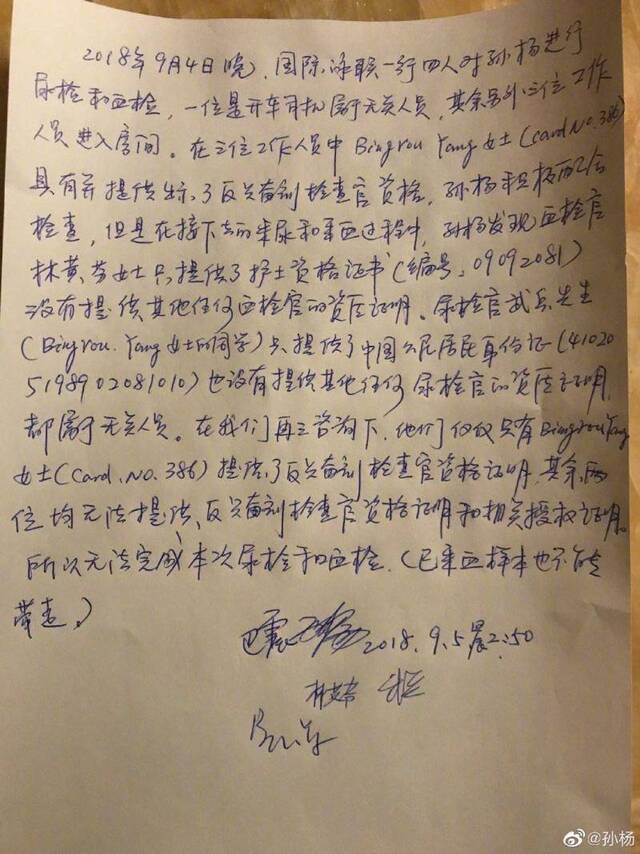 2018年9月4日晚,国际泳联一行四人对孙杨进行
尿检和血检,一位是开车司机属于无关人员,其余另外三位工作
人员进入房间。在三位工作人员中Bingrou Yang女士(card.No.386)
具有并提供出示了反兴奋剂检查官资格,孙杨积极配合
检查,但是在接下去的采尿和采血过程中,孙杨发现血检官
林黄芬女士只提供了护士资格证书(编号:09092081)
没有提供其他任何血检官的资质证明。尿检官武兵先生
(Bingrou.Yang女士的同学)只提供了中国公民居民身份证(41020
5198902081010)也没有提供其他任何尿检官的资质证明,
都属于无关人员。在我们再三咨询下,他们仅仅只有Bingrou Yang
女士(Card.No.386)提供了反兴奋剂检查官资格证明,其余两
位均无法提供反兴奋剂检查官资格证明和相关授权证明。
所以无法完成本次尿检和血检.(已采血样本也不能
带走。)
2018.9.5晨2:50